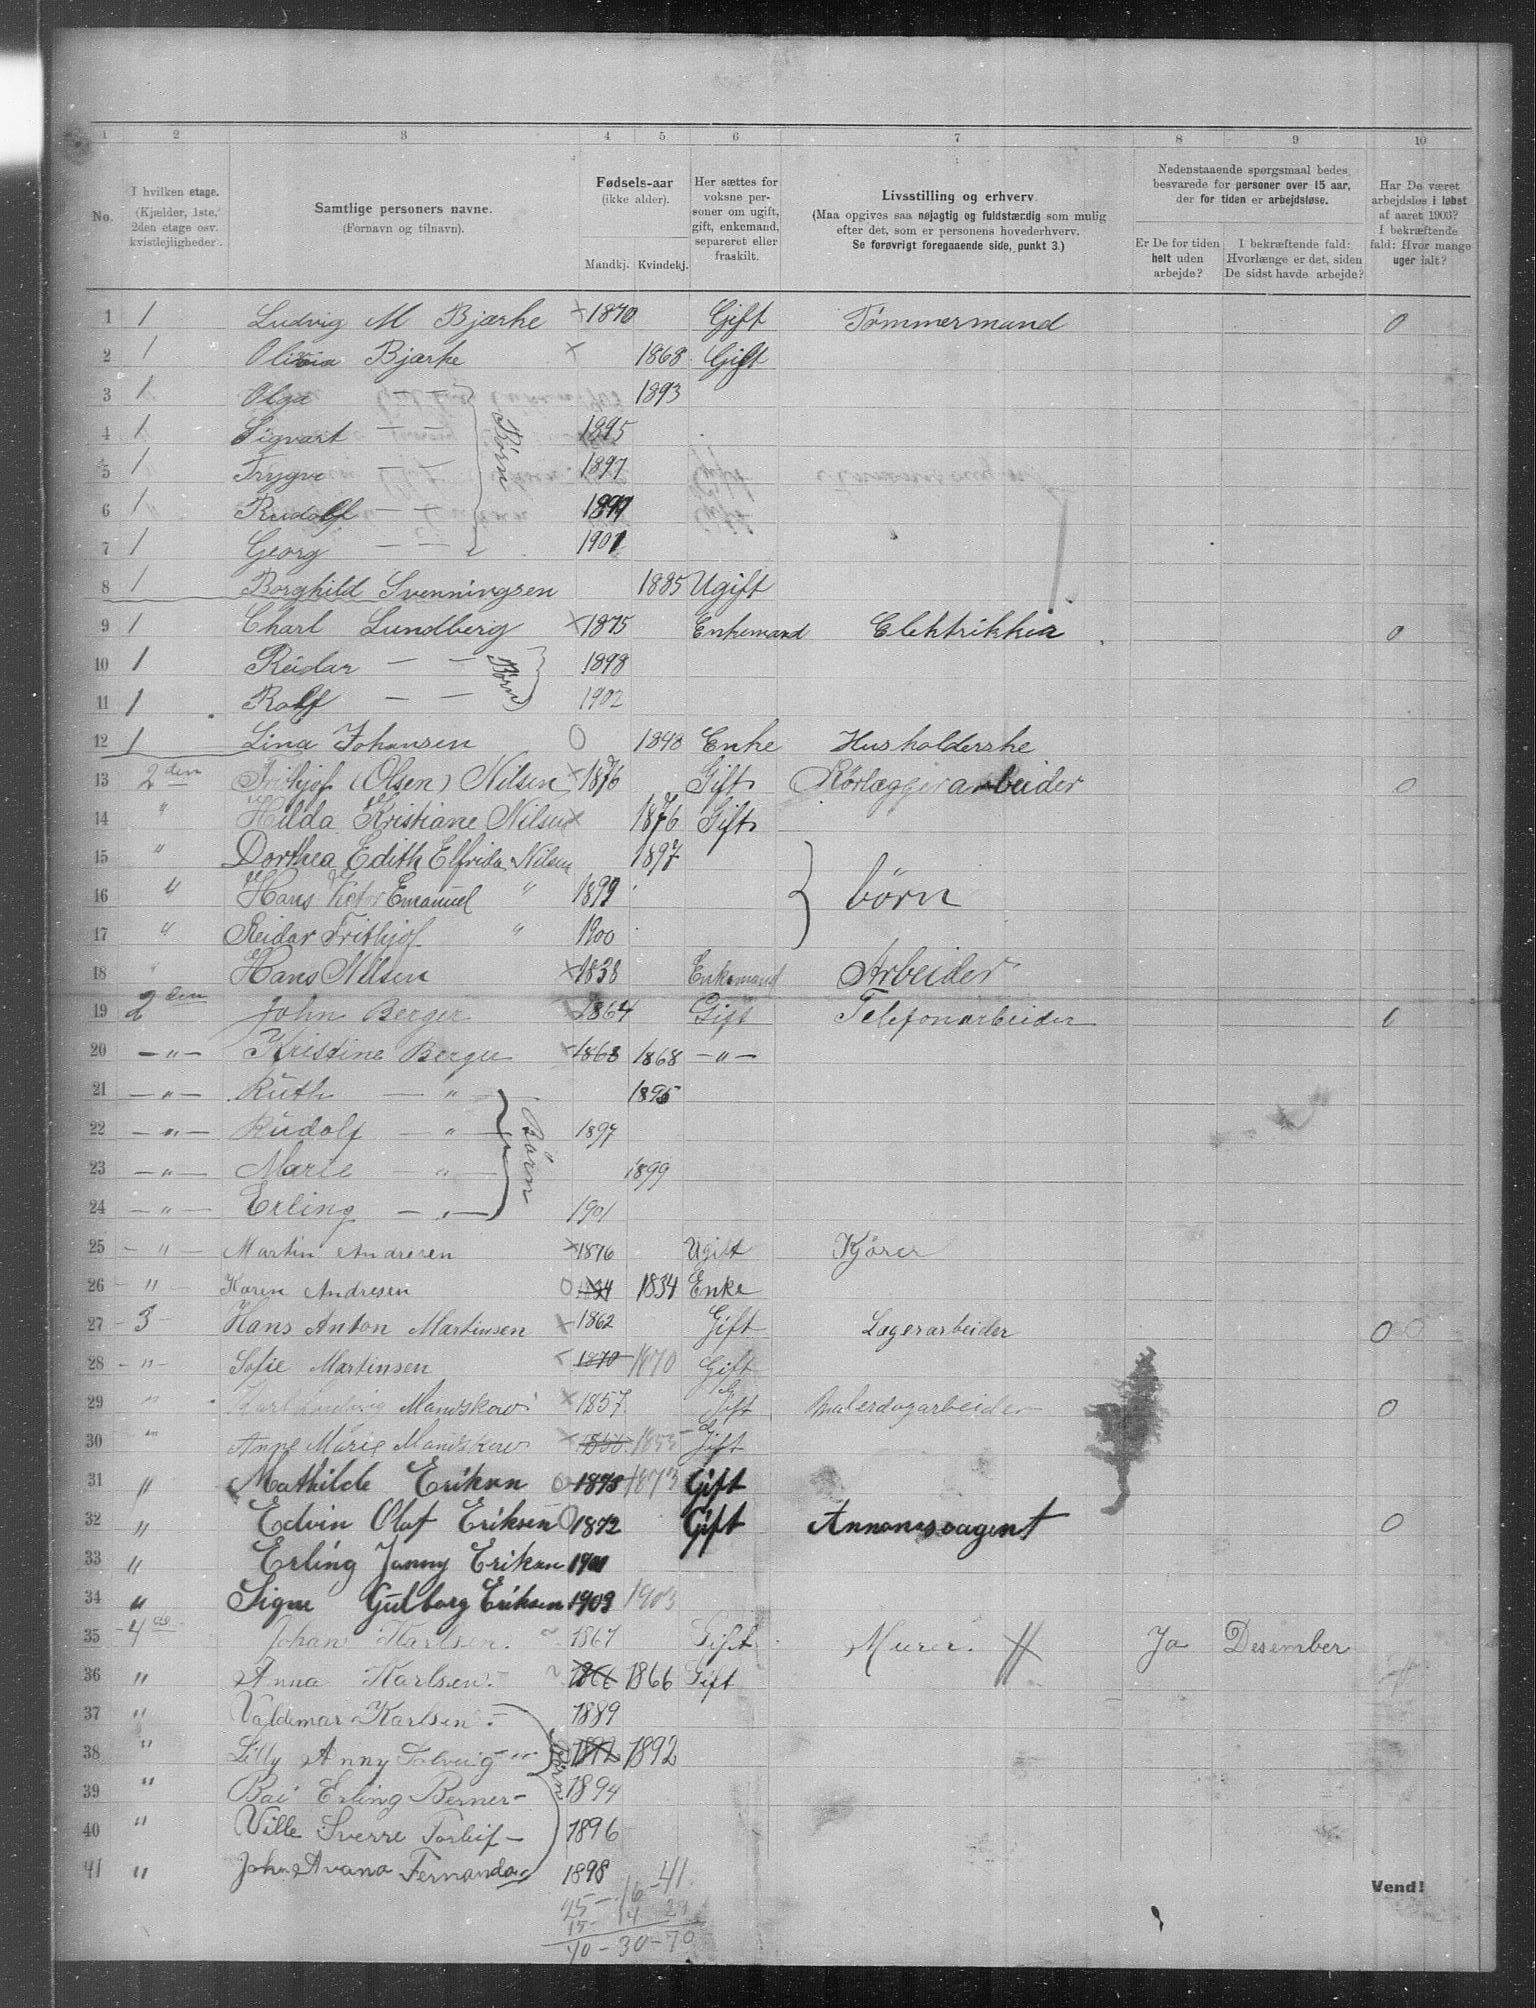 1 2 3 4 5 6 7 8 9 10
No. I hvilken etage. (Kjælder, 1ste, 2den etage osv. kvistlejligheder). Samtlige personers navne. (Fornavn og tilnavn). Fødsels-aar (ikke alder). Mandkj. Kvindekj. Her sættes for voksne personer om ugift, gift, enkemand, separeret eller fraskilt. Livsstilling og erhverv. (Maa opgives saa nøjagtig og fuldstændig som mulig efter det, som er personens hovederhverv. Se forøvrigt foregaaende side, punkt 3.) Nedenstaaende spørgsmaal bedes besvarede for personer over 15 aar, der for tiden er arbejdsløse. Er De for tiden helt uden arbejde? I bekræftende fald: Hvorlænge er det, siden De sidst havde arbejde? Har De været arbejdsløs i løbet af aaret 1903? I bekræftende fald: Hvor mange uger ialt?
1 1 Ludvig M Bjærke × 1870 Gift Tømmermand 0
2 1 Olivia Bjærke × 1868 Gift
3 1 Olga — — 1893
4 1 Sigvart — — 1895
5 1 Trygve — — Børn 1897
6 1 Rudolf — — 1899
7 1 Georg — — 1901
8 1 Borghild Svenningsen 1885 Ugift
9 1 Charl Lundberg × 1875 Enkemand Elektrikker 0
10 1 Reidar — — Børn 1898
11 1 Rolf — — 1902
12 1 Lina Johansen 0 1848 Enke Husholderske
13 2den Frithjof (Olsen) Nilsen × 1876 Gift Rørlæggerarbeider 0
14 " Hilda Kristiane Nilsen × 1876 Gift
15 " Dorthea Edith Elfrida Nilsen 1897
16 " Hans Victor Emanuel " 1899 børn
17 " Reidar Frithjof " 1900
18 " Hans Nilsen × 1838 Enkemand Arbeider
19 2den John Berger × 1864 Gift Telefonarbeider 0
20 —"— Kristine Berger × 1868 1868 —"—
21 —"— Ruth — " 1895
22 —"— Rudolf — " — Børn 1897
23 —"— Marie — " — 1899
24 —"— Erling — " — 1901
25 —"— Martin Andresen × 1876 Ugift Kjører
26 —"— Karen Andresen 0 1834 1834 Enke
27 3 Hans Anton Martinsen × 1862 Gift Lagerarbeider 0 0
28 —"— Sofie Martinsen × 1870 1870 Gift
29 " Karl Ludvig Mandskow × 1857 Gift Malerdagarbeider 0
30 " Anne Marie Mandskow × 1853 Gift
31 " Mathilde Eriksen 0 1873 1873 Gift
32 " Edvin Olaf Eriksen 0 1872 Gift Annonseagent 0
33 " Erling Jenny Eriksen 1901
34 " Signe Gulborg Eriksen 1903 1903
35 4de Johan Karlsen. 1867 Gift Murer. Ja Desember
36 " Anna Karlsen. 1866 1866 Gift
37 " Valdemar Karlsen 1889
38 " Lilly Anny Solveig —"— Børn 1892 1892
39 " Bai Erling Berner — 1894
40 " Ville Sverre Torleif — 1896
41 " John Fernanda 1898
16 — 41
25 — 14 29
15 —
40 — 30 — 70
Vend!